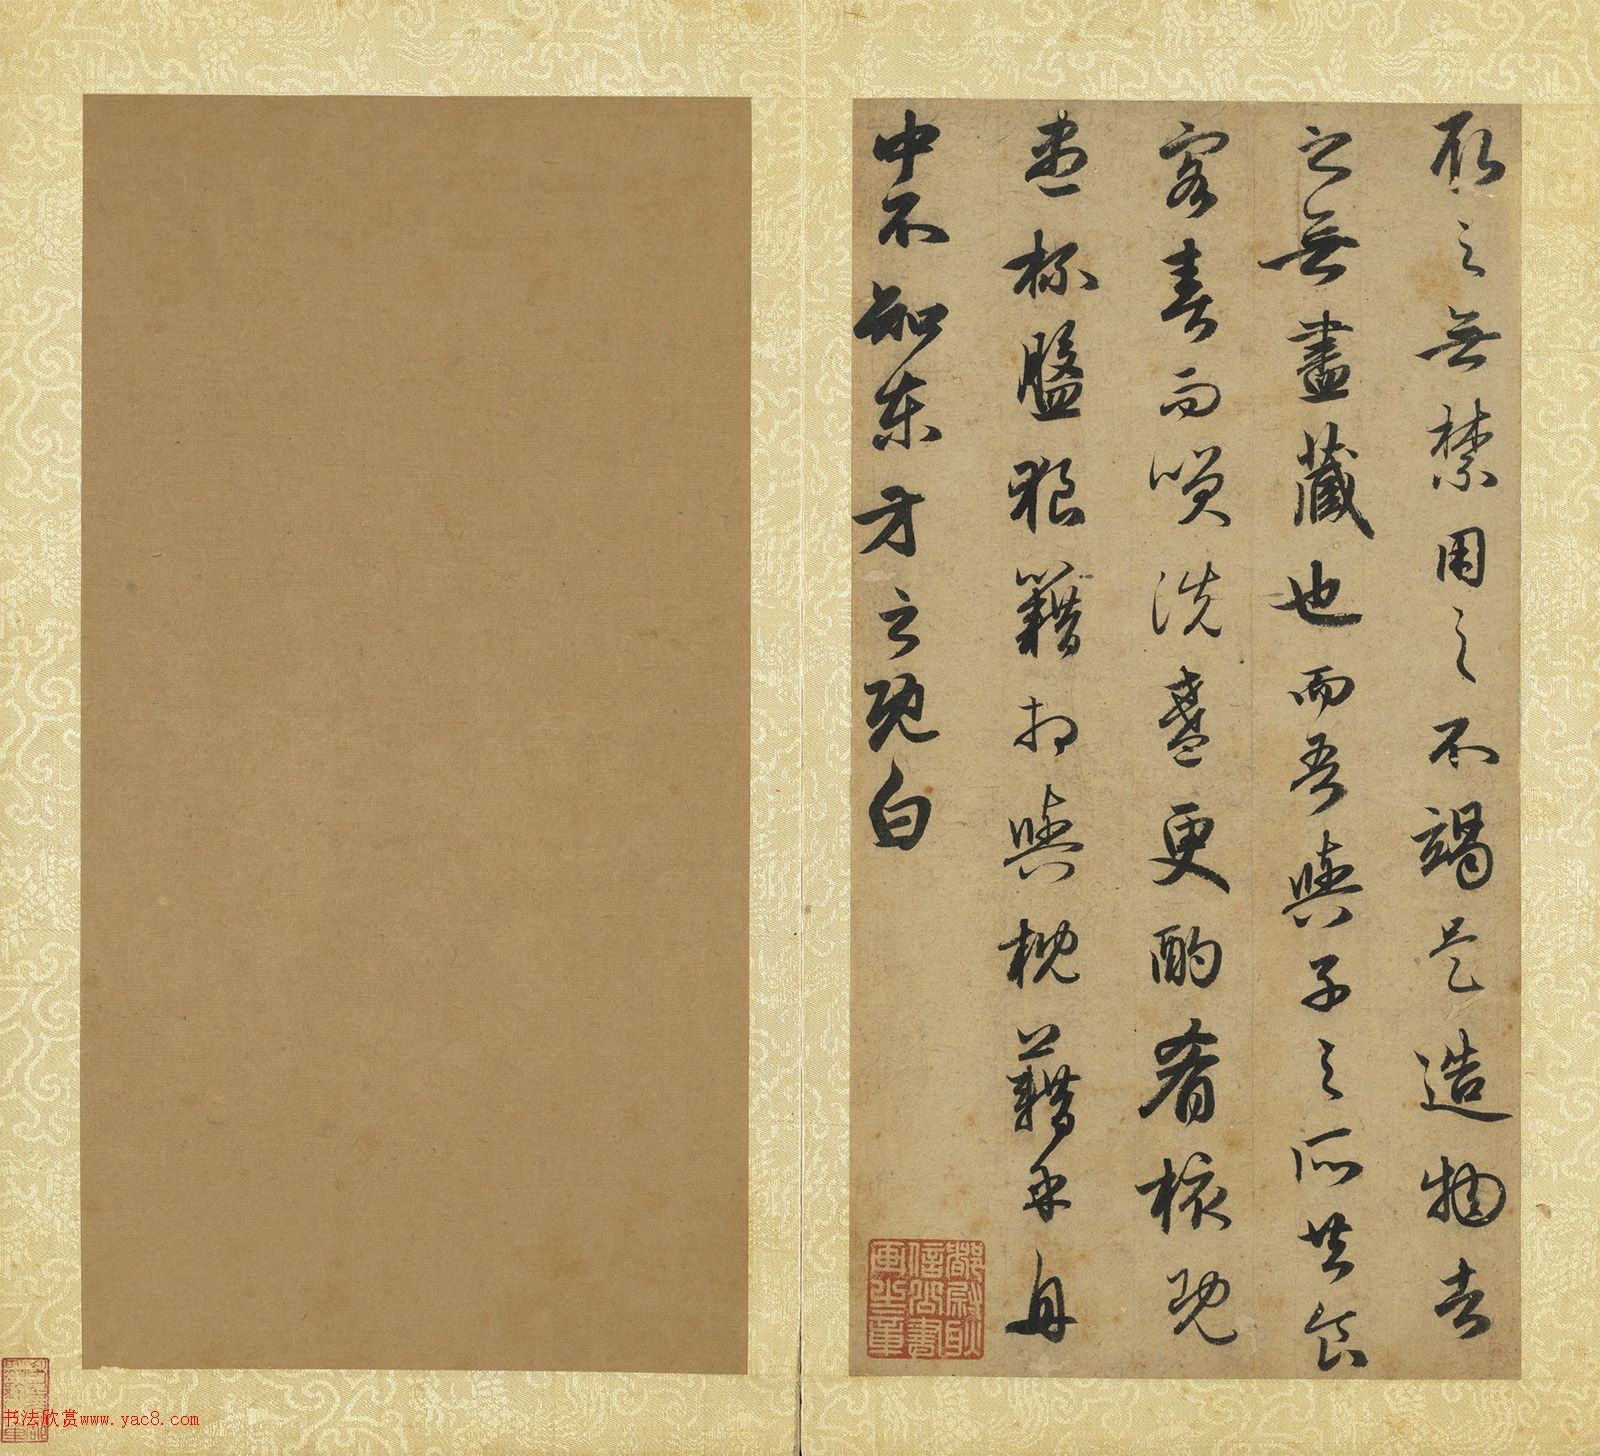 取之無禁用之不竭是造物者
之無盡藏也而吾與子之所共食
客喜而笑洗盞更酌肴核既
盡杯盤狼籍相與枕藉乎舟
中不知東方之既白
都尉耿信公書畫之章
书法欣赏www.yac8.com